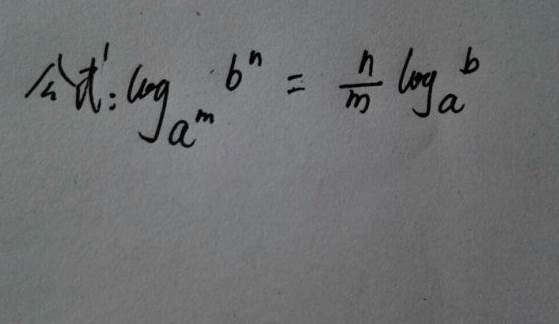 公式: log_{a^m} b^n = \frac{n}{m} log_a b